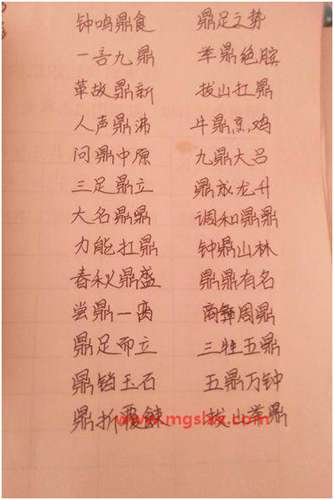 钟鸣鼎食 鼎足之势
一言九鼎 举鼎绝膑
革故鼎新 拔山扛鼎
人声鼎沸 牛鼎烹鸡
问鼎中原 九鼎大吕
三足鼎立 鼎成龙升
大名鼎鼎 调和鼎鼐
力能扛鼎 钟鼎山林
春秋鼎盛 鼎鼎有名
尝鼎一脔 商彝周鼎
鼎足而立 三牲五鼎
鼎铛玉石 五鼎万钟
鼎折覆餗 拔山举鼎